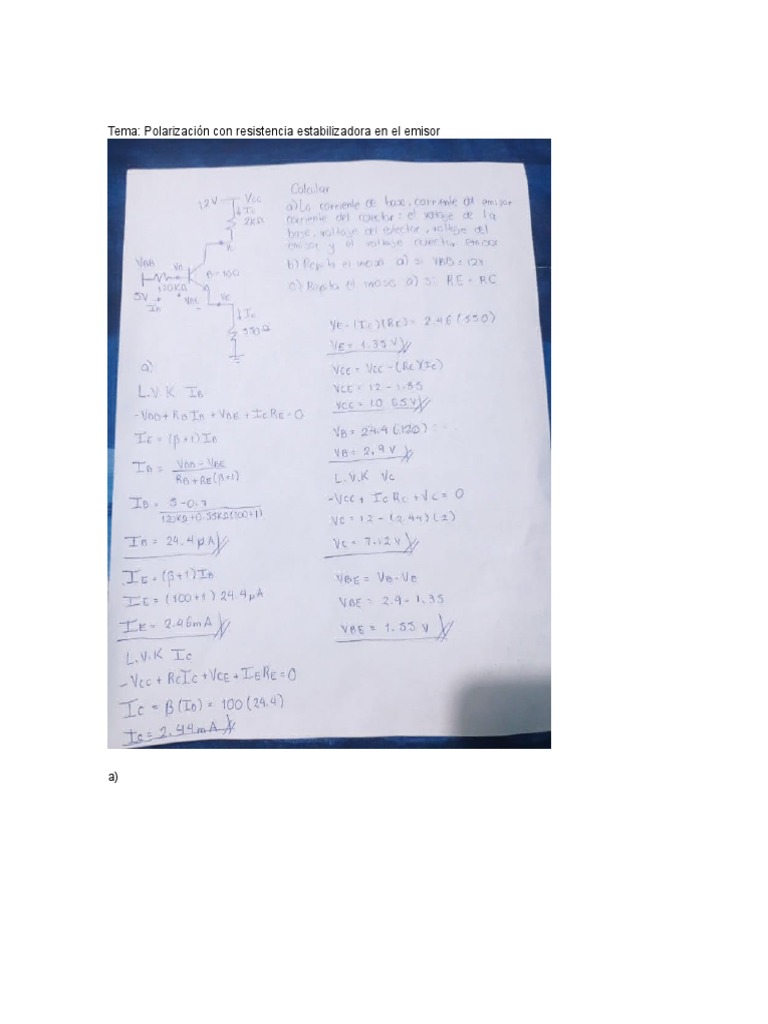 Tema: Polarización con resistencia estabilizadora en el emisor
12V
VCC
IC
2KΩ
VBB
VB
120KΩ
5V
IB
VBE
β=100
VE
IE
550Ω
Calcular
a) La corriente de base, corriente del emisor
corriente del colector: el voltaje de la
base, voltaje del colector, voltaje del
emisor y el voltaje colector emisor
b) Repita el inciso a) si VBB = 12V
c) Repita el inciso a) si RE = RC
a)
L.V.K IB
-VBB + RB IB + VBE + IE RE = 0
IE = (β+1) IB
IB = VBB - VBE
RB + RE(β+1)
IB = 5 - 0.7
120KΩ + 0.55KΩ(100+1)
IB = 24.4 μA
IE = (β+1) IB
IE = (100+1) 24.4 μA
IE = 2.46 mA
L.V.K IC
-VCC + RC IC + VCE + IE RE = 0
IC = β(IB) = 100(24.4)
IC = 2.44 mA
VE = (IE)(RE) = 2.46 (550)
VE = 1.35 V
VCE = VCC - (RC)(IC)
VCE = 12 - 1.35
VCE = 10.65 V
VB = 24.4 (120)
VB = 2.9 V
L.V.K VC
-VCC + IC RC + VC = 0
VC = 12 - (2.44)(2)
VC = 7.12 V
VBE = VB - VE
VBE = 2.9 - 1.35
VBE = 1.55 V
a)